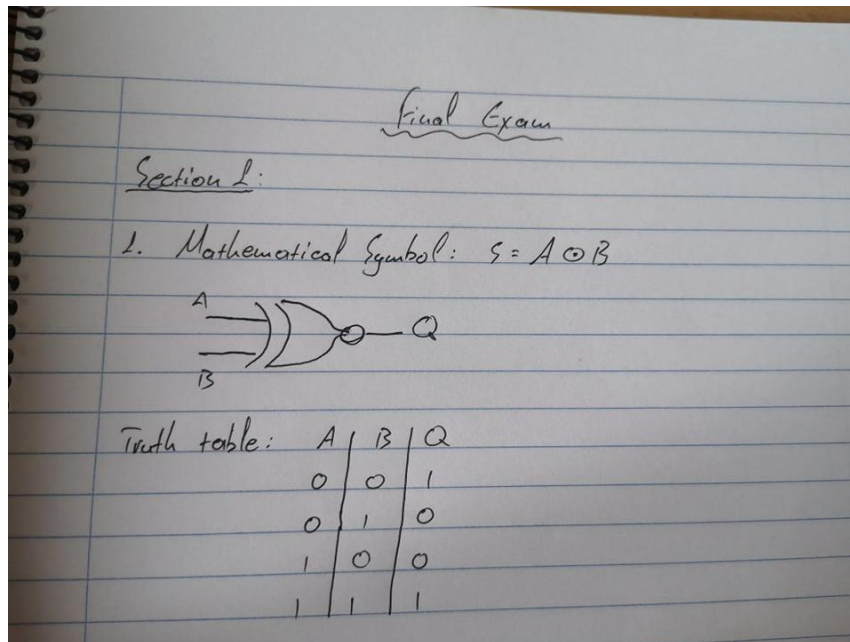 Final Exam
Section 1:
1. Mathematical Symbol: S = A ⊙ B
A
Q
B
Truth table: A | B | Q
0 | 0 | 1
0 | 1 | 0
1 | 0 | 0
1 | 1 | 1